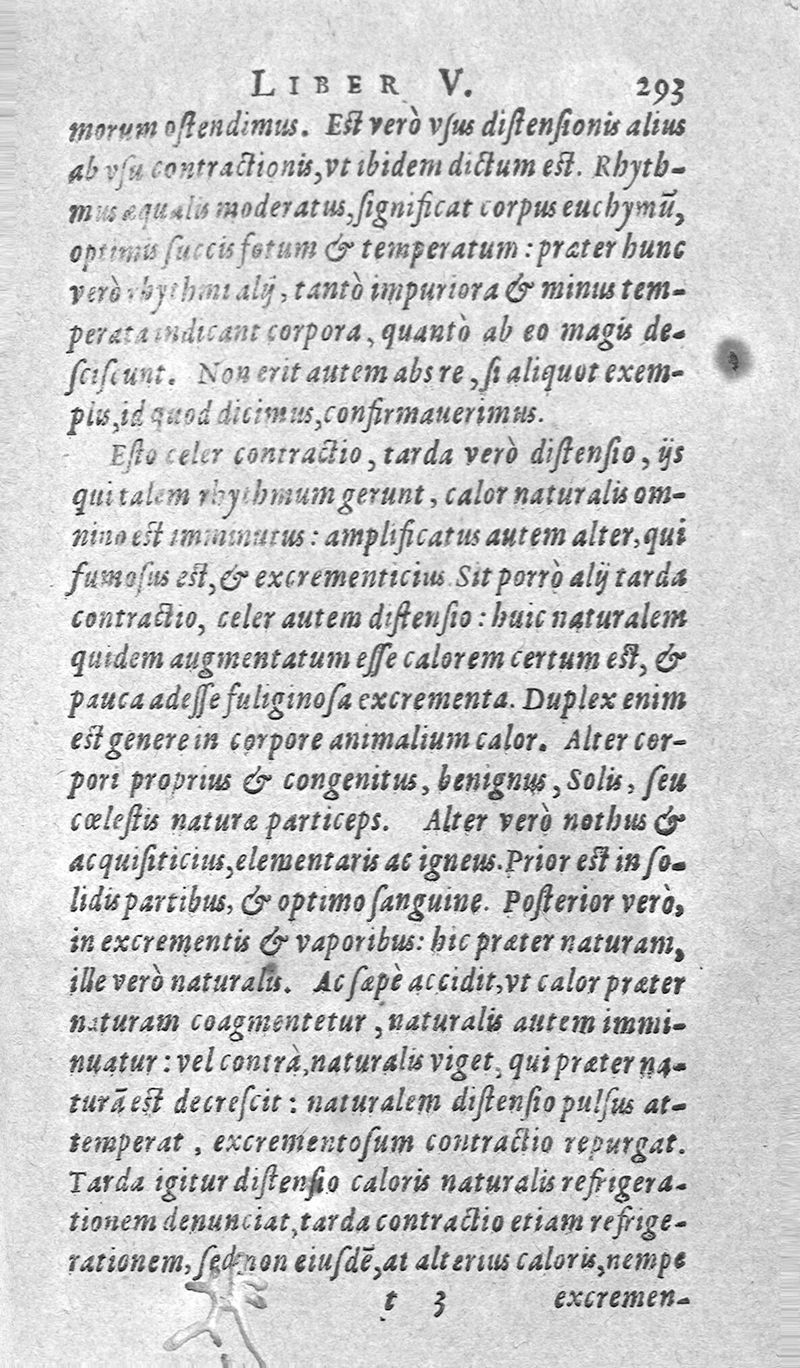 LIBER V. 293
morum ostendimus. Est verò vsus distensionis alius
ab vsu contractionis, vt ibidem dictum est. Rhyth-
mus æqualis moderatus, significat corpus euchymũ,
optimis succis fotum & temperatum: præter hunc
verò rhythmi alij, tantò impuriora & minus tem-
perata indicant corpora, quantò ab eo magis de-
sciscunt. Non erit autem abs re, si aliquot exem-
plis, id quod dicimus, confirmauerimus.
Esto celer contractio, tarda verò distensio, ijs
qui talem rhythmum gerunt, calor naturalis om-
nino est imminutus: amplificatus autem alter, qui
fumosus est, & excrementicius. Sit porrò alij tarda
contractio, celer autem distensio: huic naturalem
quidem augmentatum esse calorem certum est, &
pauca adesse fuliginosa excrementa. Duplex enim
est genere in corpore animalium calor. Alter cor-
pori proprius & congenitus, benignus, Solis, seu
cœlestis naturæ particeps. Alter verò nothus &
acquisiticius, elementaris ac igneus. Prior est in so-
lidis partibus, & optimo sanguine. Posterior verò,
in excrementis & vaporibus: hic præter naturam,
ille verò naturalis. Ac sæpè accidit, vt calor præter
naturam coagmentetur, naturalis autem immi-
nuatur: vel contrà, naturalis viget, qui præter na-
turã est decrescit: naturalem distensio pulsus at-
temperat, excrementosum contractio repurgat.
Tarda igitur distensio caloris naturalis refrigera-
tionem denunciat, tarda contractio etiam refrige-
rationem, sed non eiusdẽ, at alterius caloris, nempe
t 3 excremen-